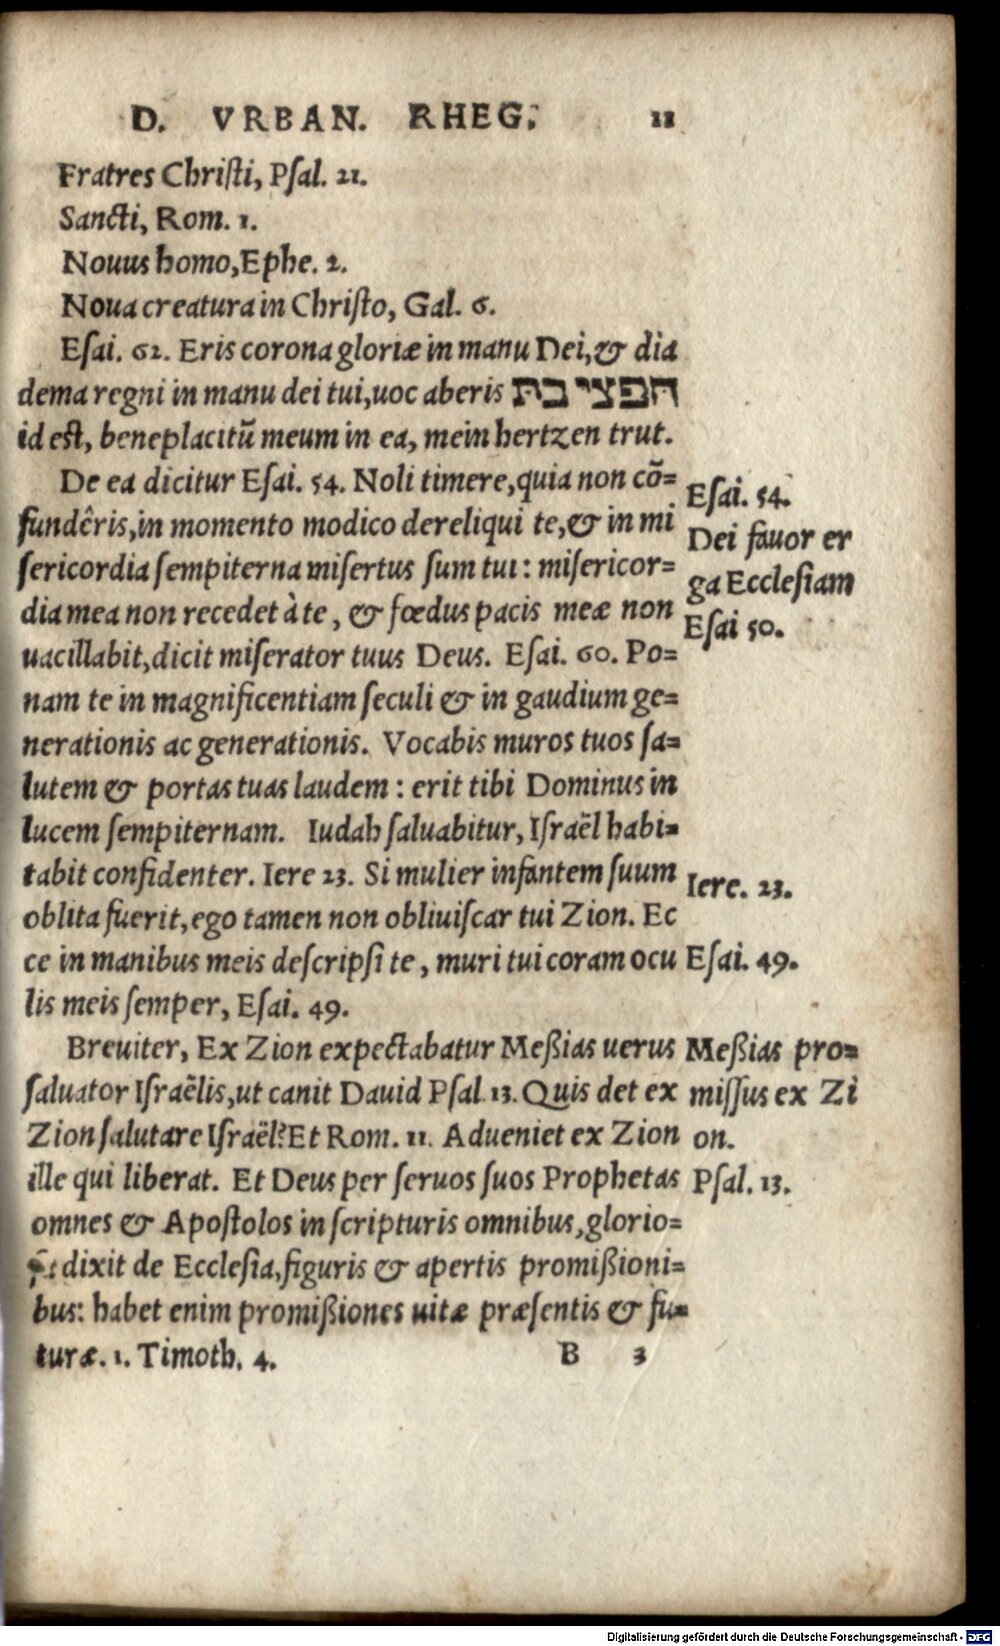 D. VRBAN. RHEG. 11
Fratres Christi, Psal. 21.
Sancti, Rom. 1.
Nouus homo, Ephe. 2.
Noua creatura in Christo, Gal. 6.
Esai. 62. Eris corona gloriæ in manu Dei, & dia
dema regni in manu dei tui, uoc aberis חפצי בה
id est, beneplacitũ meum in ea, mein hertzen trut.
De ea dicitur Esai. 54. Noli timere, quia non cõ=
fundêris, in momento modico dereliqui te, & in mi
sericordia sempiterna misertus sum tui: misericor=
dia mea non recedet à te, & fœdus pacis meæ non
uacillabit, dicit miserator tuus Deus. Esai. 60. Po=
nam te in magnificentiam seculi & in gaudium ge=
nerationis ac generationis. Vocabis muros tuos sa=
lutem & portas tuas laudem: erit tibi Dominus in
lucem sempiternam. Iudah saluabitur, Israël habi=
tabit confidenter. Iere 23. Si mulier infantem suum
oblita fuerit, ego tamen non obliuiscar tui Zion. Ec
ce in manibus meis descripsi te, muri tui coram ocu
lis meis semper, Esai. 49.
Breuiter, Ex Zion expectabatur Meßias uerus
saluator Israëlis, ut canit Dauid Psal. 13. Quis det ex
Zion salutare Israël? Et Rom. 11. Adueniet ex Zion
ille qui liberat. Et Deus per seruos suos Prophetas
omnes & Apostolos in scripturis omnibus, glorio=
dixit de Ecclesia, figuris & apertis promißioni=
bus: habet enim promißiones uitæ præsentis & fu=
turæ. 1. Timoth. 4.
B 3
Esai. 54.
Dei fauor er
ga Ecclesiam
Esai 50.
Iere. 23.
Esai. 49.
Meßias pro=
missus ex Zi
on.
Psal. 13.
Digitalisierung gefördert durch die Deutsche Forschungsgemeinschaft - DFG